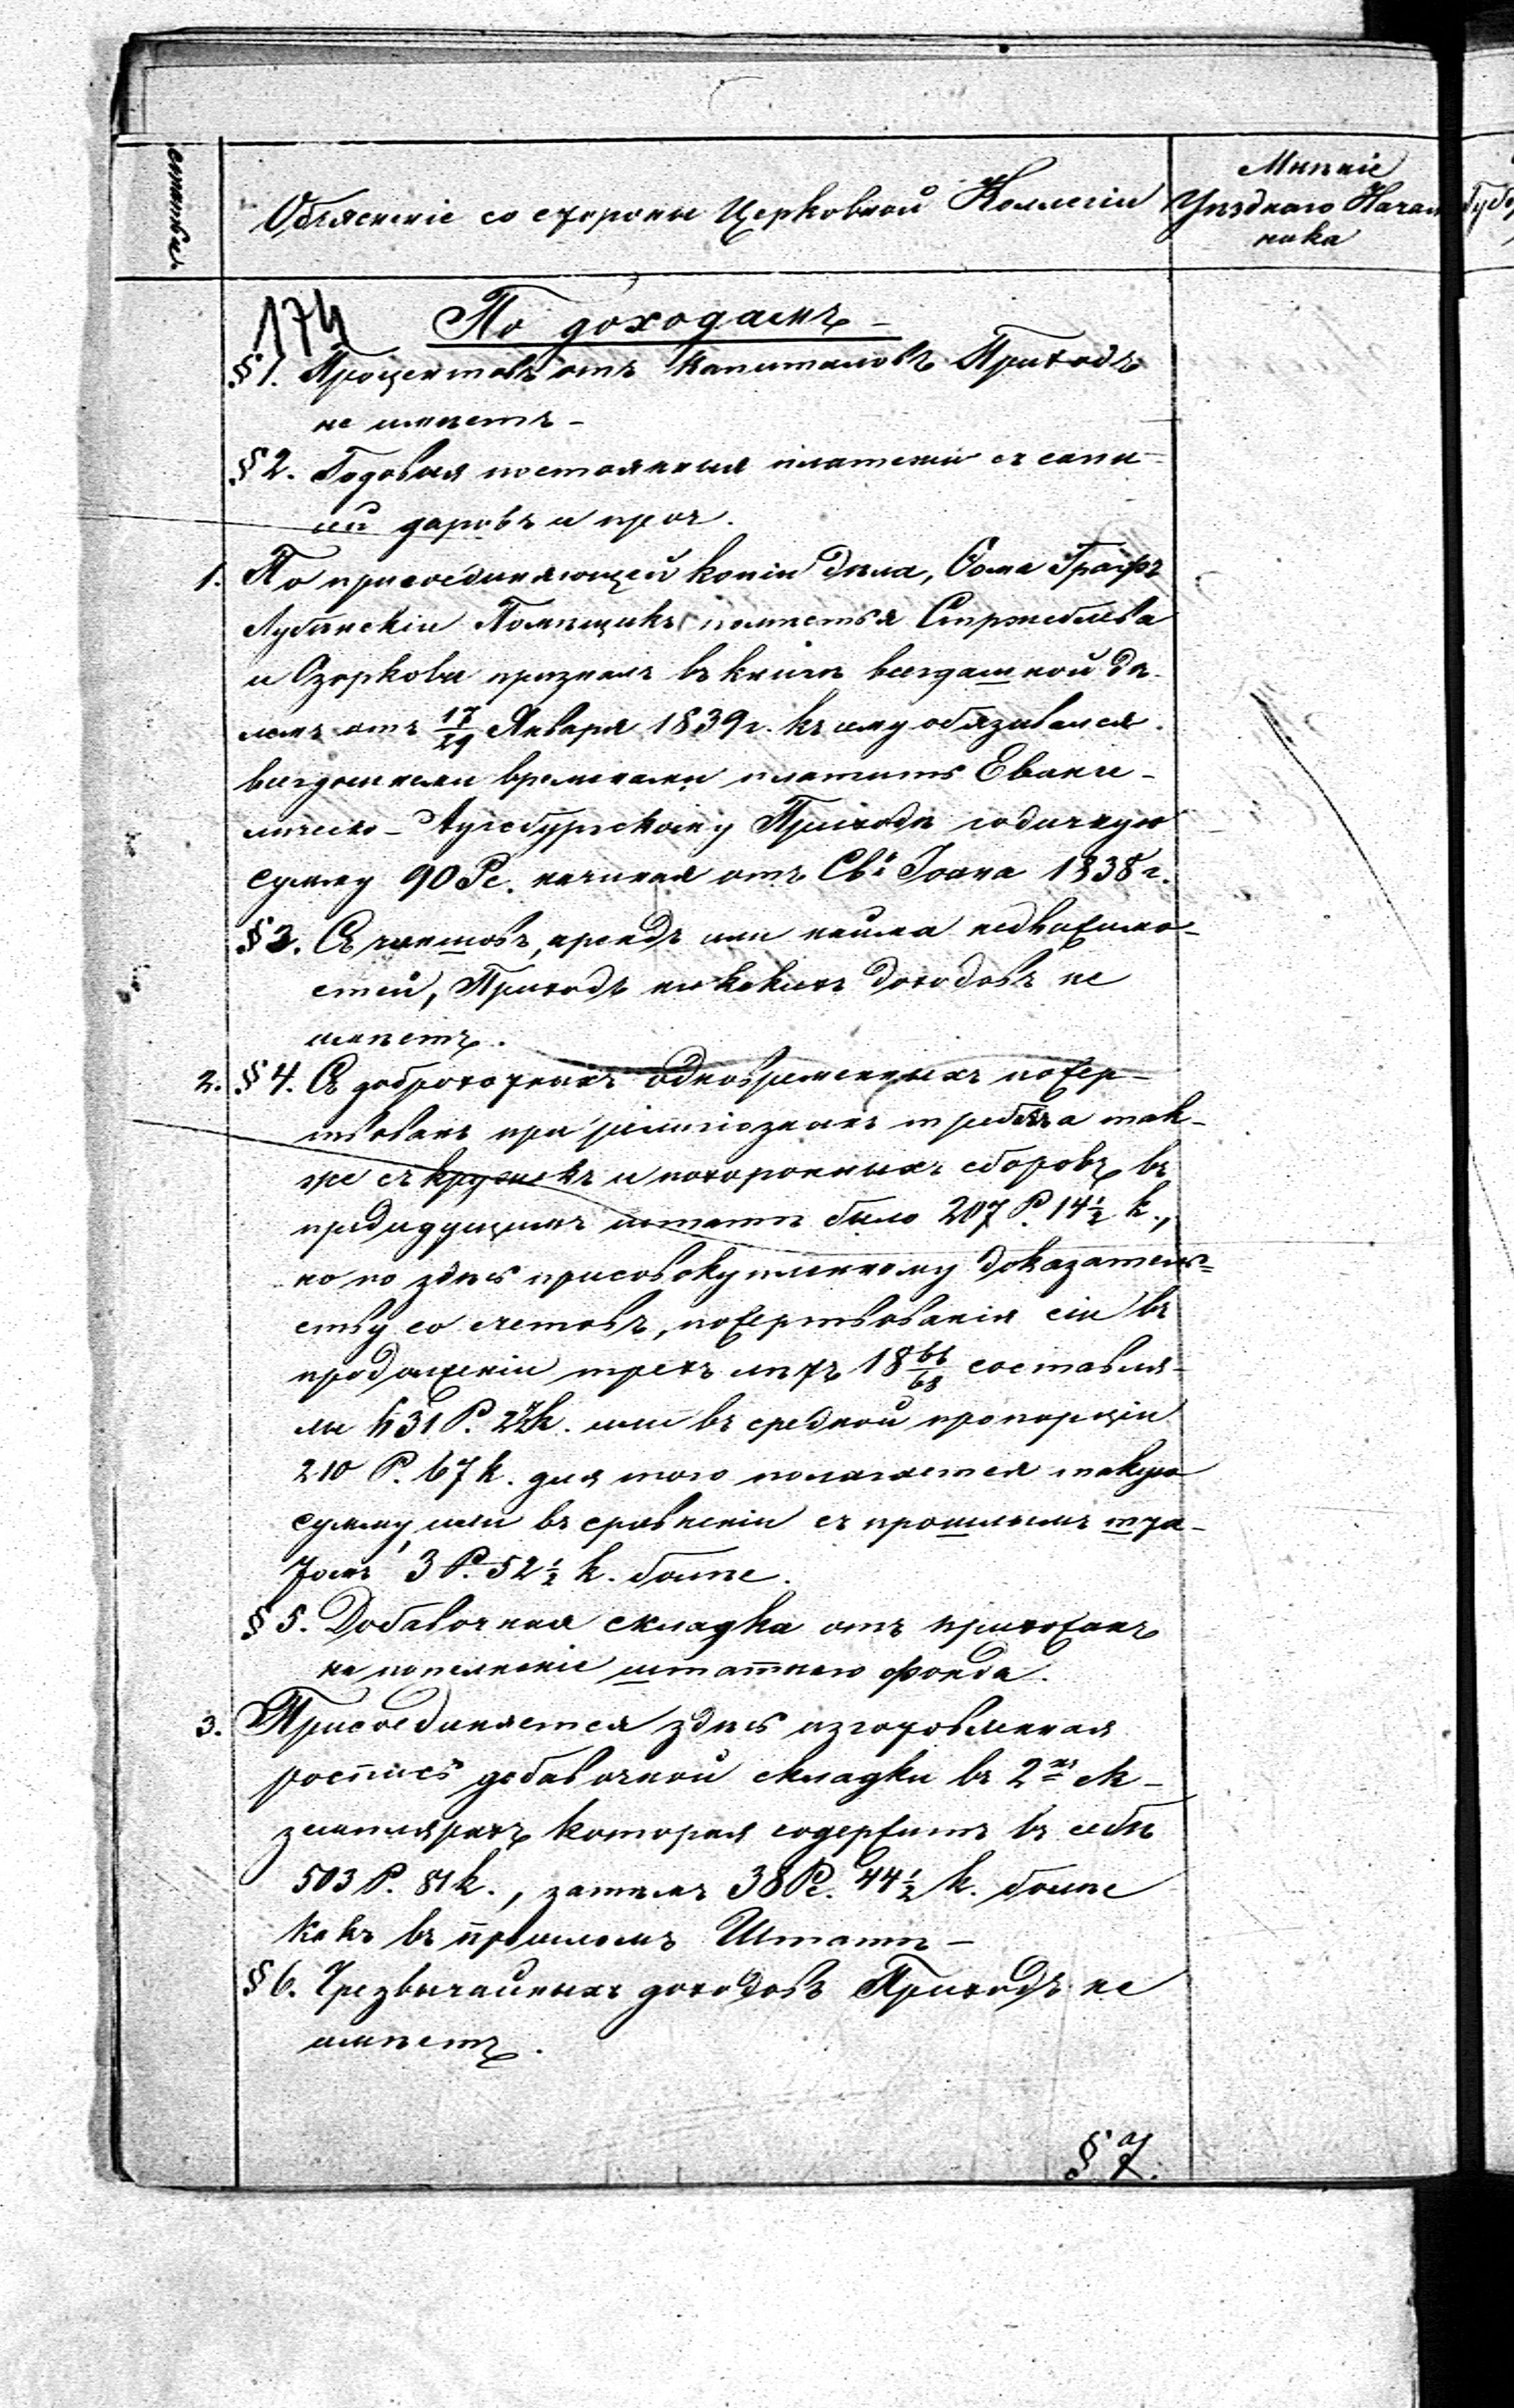 Объясненіе со стороны Церковной Коллегіи
Мнѣніе
Уѣзднаго Начал
ника
174
По доходамъ –
§ 1. Процентовъ отъ капиталовъ Приходъ
не имѣетъ –
§ 2. Годовыя постоянныя платежи съ сани-
ій даровъ и проч.
1. По присоединяющей копіи дѣла, Ѳома Графъ
Лубѣнскіи Помѣщикъ помѣстья Стржеблева
и Озоркова призналъ въ книгѣ всегдашной дѣ-
ломъ отъ 17/29 Января 1839 г. къ ему обязывался
всегдашными временами платить Еванге-
лическо-Аугсбургскому Приходѣ годичную
сумму 90 Рс. начиная отъ Св. Іоана 1838 г.
§ 3. Съ чиншовъ, арендъ или найма недвижимо-
стей, Приходъ никакихъ доходовъ не
имѣетъ.
2. § 4. Съ доброхотныхъ одновременныхъ пожер-
твованъ при религіозныхъ требахъ а так-
же съ кружекъ и похоронныхъ сборовъ въ
предидущимъ штатѣ было 207 Р. 14½ к.,
но по здѣсь присовокупленному доказатель=
ству со счетовъ, пожертвованія сіи въ
продолженіи трехъ лѣтъ 18 66/68 составля-
ли 631 Р. 2 к. или въ средной пропорціи
210 Р. 67 к. для того полагается такую
сумму, или въ сравненіи съ прошлымъ шта-
томъ 3 Р. 52½ к. болѣе.
§ 5. Добавочная складка отъ прихожанъ
на пополненіе штатнаго фонда.
3. Присоединяется здѣсь изготовленная
роспись добавочной складки въ 2хъ эк-
земплярахъ которая содержитъ въ себѣ
503 Р. 81 к., затѣмъ 38 Рс. 44½ к. болѣе
какъ въ прошломъ Штатѣ –
§ 6. Чрезвычайныхъ доходовъ Приходъ не
имѣетъ.
§ 7.